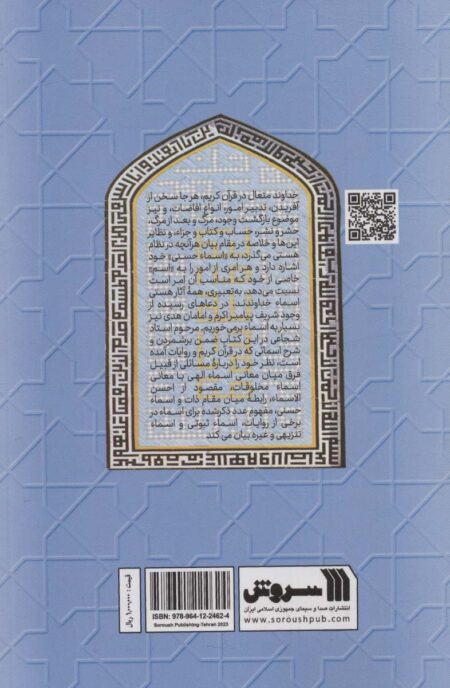 خداوند متعال در قرآن کریم، هر جا سخن از
آفریدن، تدبیر امور، انواع افاضات، و نیز
موضوع بازگشت وجود، مرگ و بعد از مرگ،
حشر و نشر، حساب و کتاب و جزاء، و نظایر
این‌ها و خلاصه در مقام بیان هرآنچه در نظام
هستی می‌گذرد، به «اسماء حسنی» خود
اشاره دارد و هر امری از امور را به «اسم»
خاصی از خود که مناسب آن امر است
نسبت می‌دهد. به‌تعبیری، همۀ آثار هستی
اسماء خداوندند. در دعاهای رسیده از
وجود شریف پیامبر اکرم و امامان هدی نیز
بسیار به اسماء برمی‌خوریم. مرحوم استاد
شجاعی در این کتاب ضمن برشمردن و
شرح اسمائی که در قرآن کریم و روایات آمده
است، نظر خود را دربارۀ مسائلی از قبیل
فرق میان معانی اسماء الهی با معانی
اسماء مخلوقات، مقصود از احسن
الاسماء، رابطۀ میان مقام ذات و اسماء
حسنی، مفهوم عدد ذکرشده برای اسماء در
برخی از روایات، اسماء ثبوتی و اسماء
تنزیهی و غیره بیان می‌کند.
سروش
انتشارات صدا و سیمای جمهوری اسلامی ایران
www.soroushpub.com
ISBN: 978-964-12-2462-4
Soroush Publishing-Tehran 2023
قیمت: ۱,۰۰۰,۰۰۰ ریال